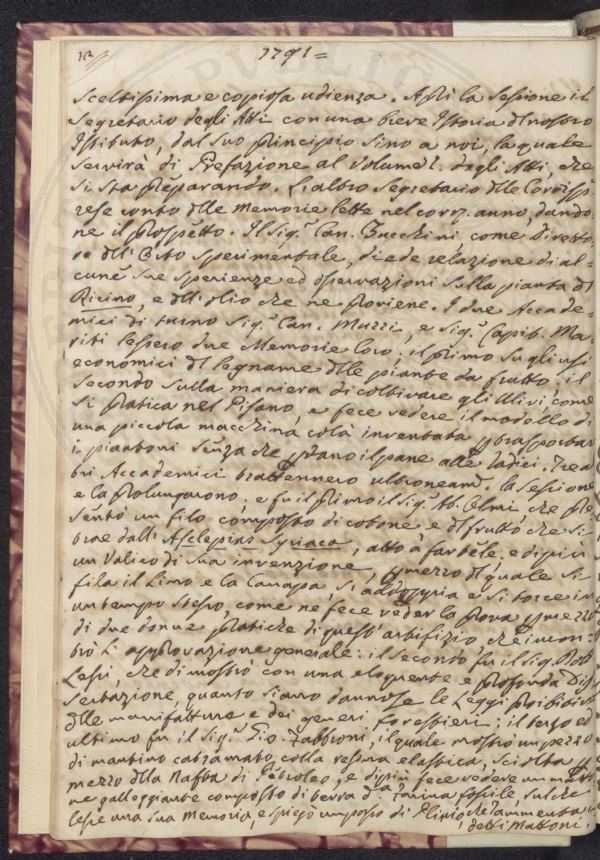 1791 =
sceltissima e copiosa udienza. Aprì la Sessione il
Segretario degli Atti con una breve Istoria dl nostro
Istituto, dal suo principio sino a noi, la quale
servirà di Prefazione al Volume I. degli Atti, che
si sta preparando. L'altro Segretario dlle Corrisp.
rese conto dlle Memorie lette nel corr. anno, dando
ne il prospetto. Il Sig. Can. Zucchini come Dirett
re dll' Orto sperimentale, diede relazione di al
cune sue sperienze ed osservazioni sulla pianta dl
Ricino, e dll' olio che ne proviene. I due Accade
mici di turno Sig. Can. Muzzi, e Sig. Capit. Ma
riti lessero due Memorie loro; il primo su gli usi
economici dl legname dlle piante da frutto: il
secondo sulla maniera di coltivare gli Ulivi, come
si pratica nel Pisano, e fece vedere il modello di
una piccola macchina colà inventata p trasportar
i piantoni senza che pdano il pane alle radici. Tre al
tri Accademici trattennero ulteriorm. la sessione
e la prolungarono; e fu il primo il Sig. Ab. Olmi che pre
sentò un filo composto di cotone e dl frutto che si
trae dall' Asclepias Syriaca, atto a far tele, e di più
un Valico di sua invenzione, p mezzo dl quale si
fila il Lino e la Canapa, si addoppia e si torce in
un tempo stesso, come ne fece veder la prova p mezzo
di due donne pratiche di quest' artifizio che incon
trò l' approvazione generale: il secondo fu il Sig. Dott.
Lessi, che dimostrò con una eloquente e profonda Dis
sertazione, quanto siano dannose le Leggi proibitive
dlle manifatture e dei generi forestieri: il terzo ed
ultimo fu il Sig. Gio. Fabbroni, il quale mostrò un pezzo
di mantino catramato, colla resina elastica, sciolta p
mezzo dlla Naffta di Petroleo, e di più fece vedere un matto
ne galleggiante composto di terra d. Farina fossile, sul che
lesse una sua Memoria, e spiegò un passo di Plinio, che rammenta
detti Mattoni.